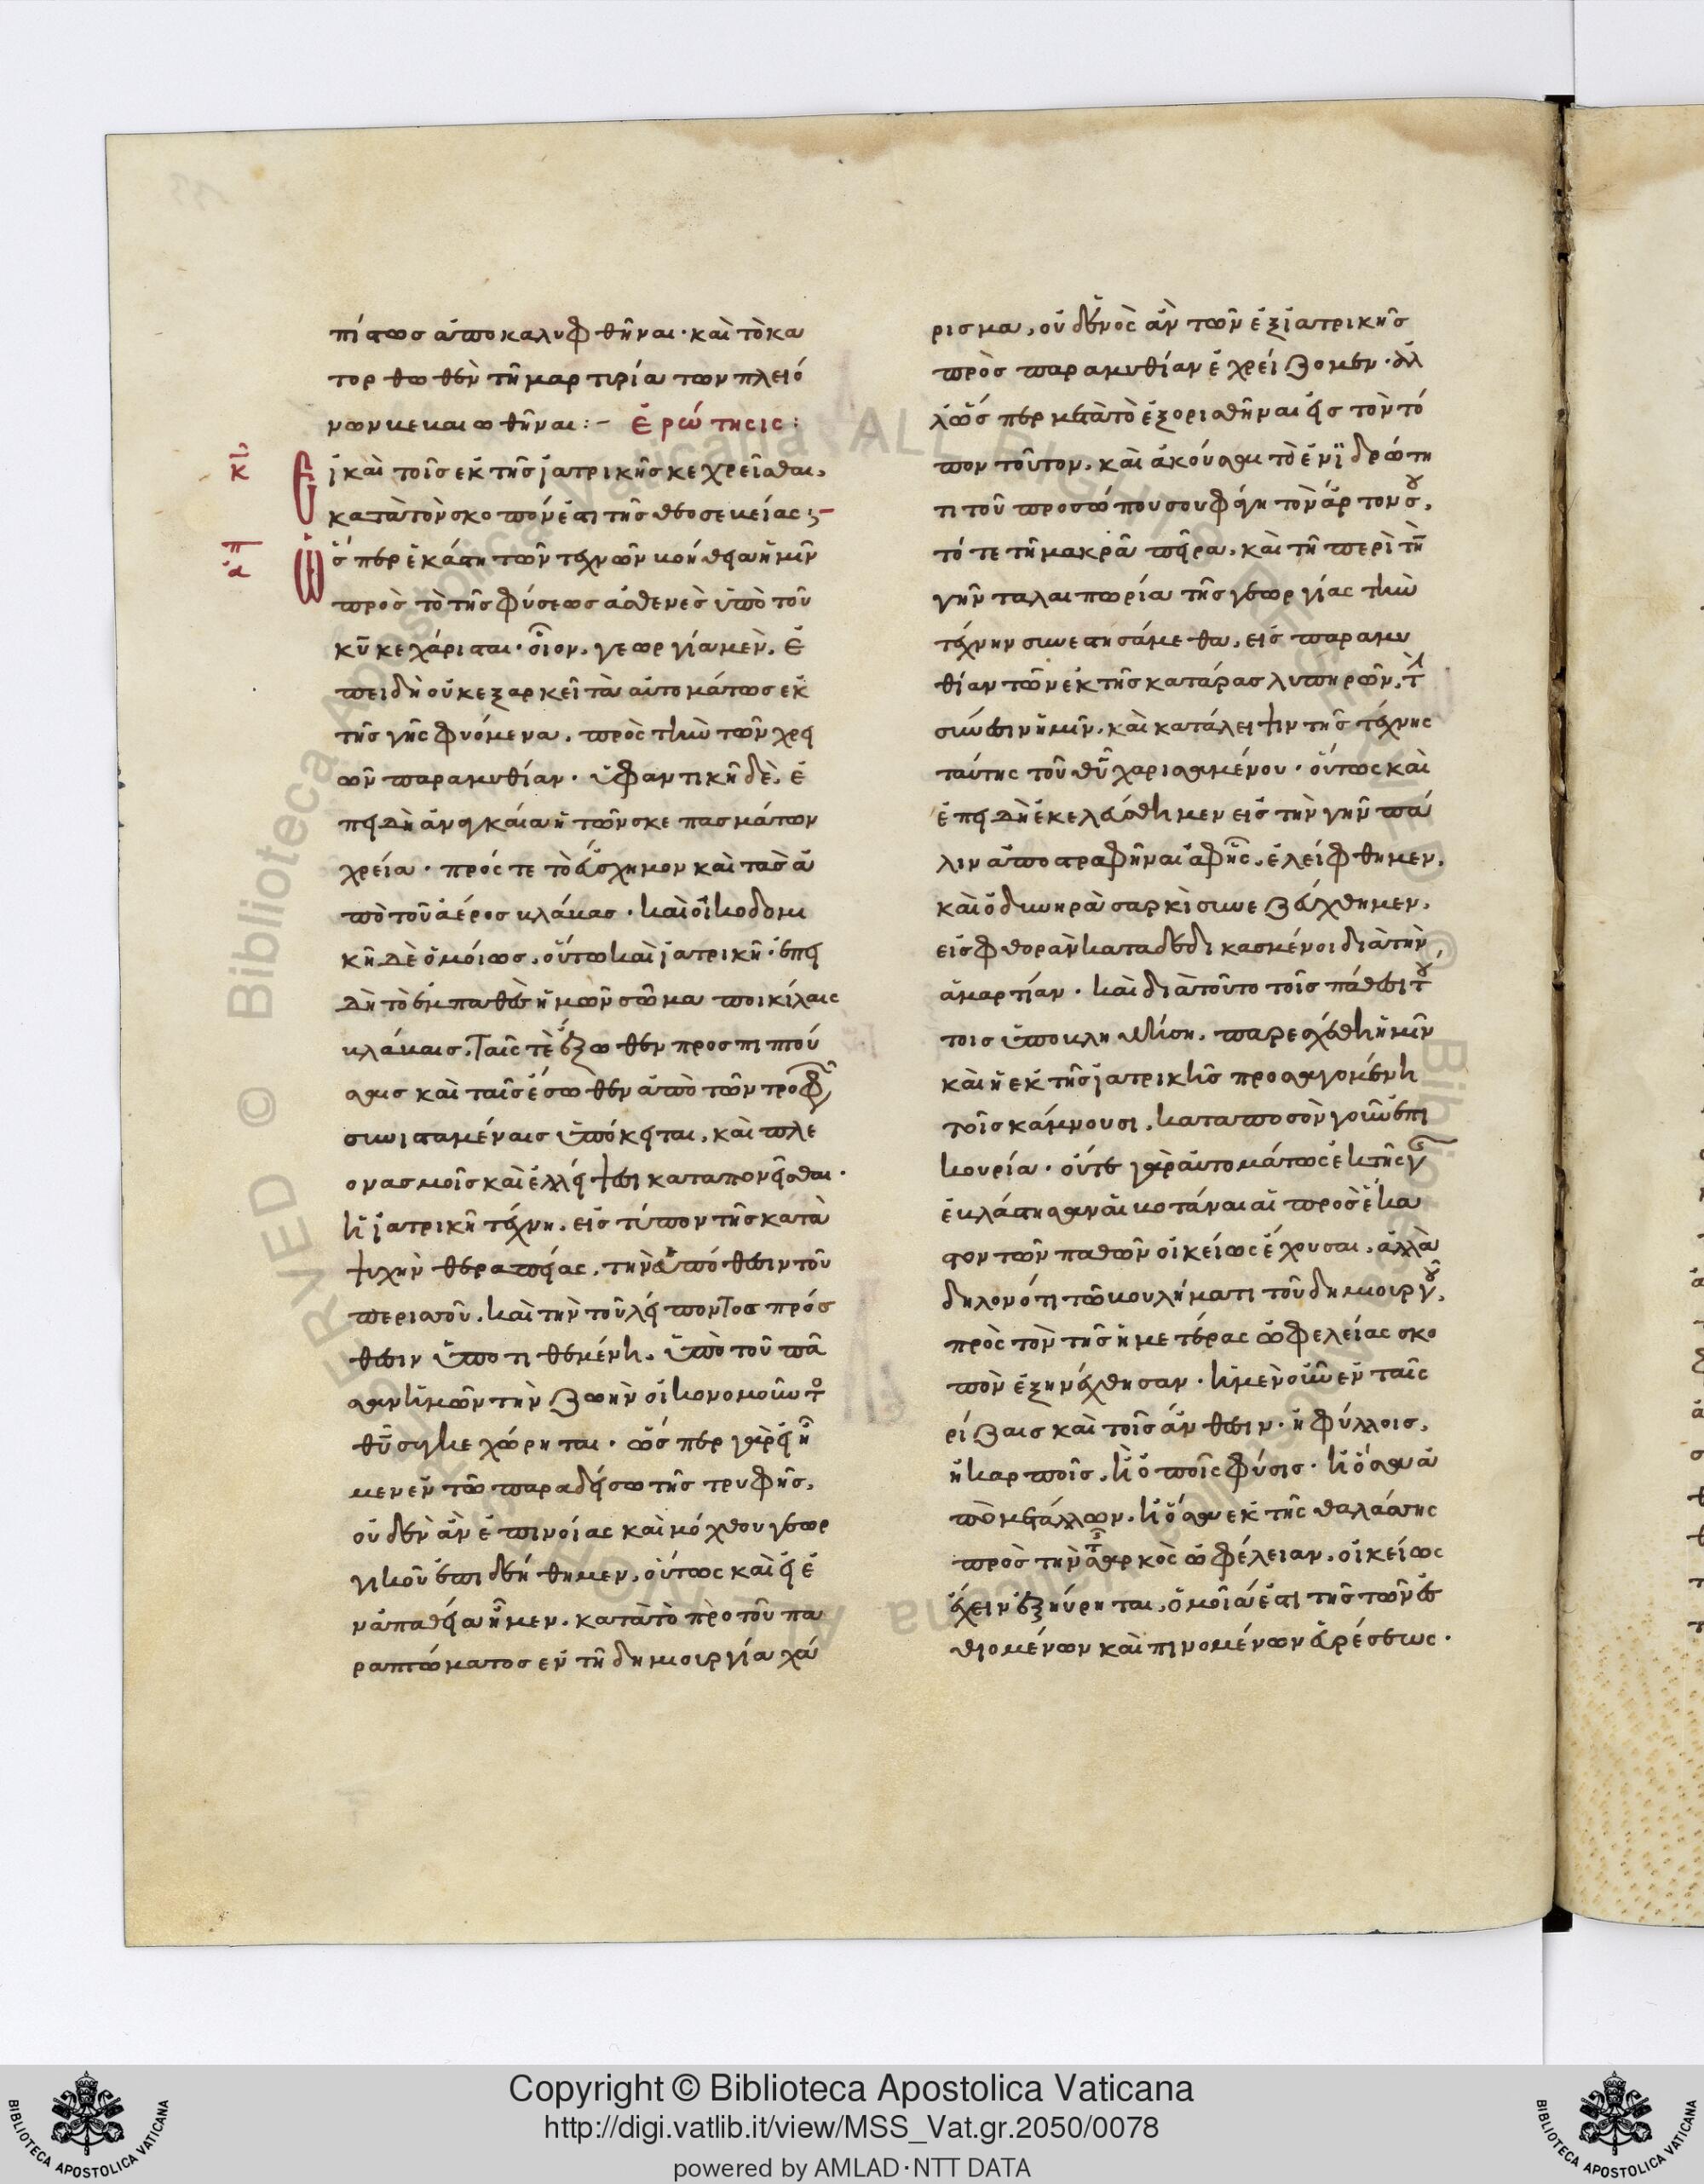 πίστως ἀποκαλυφθῆναι· καὶ τὸ κα
τορθωθὲν τῆ μαρτυρία των πλειό
νων βεβαιωθῆναι:– Ἐρώτησις:
κ̅
Εἰ καὶ τοῖς ἐκ τῆς ἰατρικῆς κεχρεῖσθαι,
κατὰ τὸν σκοπόν ἐστι τῆς θεοσεβείας;–
ἀπ
Ὥσπερ ἑκάστη τῶν τεχνῶν βοήθεια ἡμῖν
πρὸς τὸ τῆς φύσεως ἀσθενὲς ὑπὸ τοῦ
κῦ κεχάρισται· οἷον, γεωργία μὲν, ἐ
πειδὴ οὐκ ἐξαρκεῖ τὰ αὐτομάτως ἐκ
τῆς γῆς φυόμενα, πρὸς τὴν τῶν χρει
ῶν παραμυθίαν· ὑφαντικὴ δὲ, ἐ
πειδὴ ἀναγκαία ἡ τῶν σκεπασμάτων
χρεία· πρός τε τὸ εὔσχημον καὶ τὰς ἀ
πὸ τοῦ ἀέρος βλάβας· καὶ οἰκοδομι
κὴ δὲ ὁμοίως, οὕτω καὶ ἰατρική· ἐπει
δὴ τὸ ἐμπαθὲς ἡμῶν σῶμα ποικίλαις
βλάβαις, ταῖς τὲ ἔξωθεν προσπιπτού
σαις καὶ ταῖς ἔσωθεν ἀπὸ τῶν τροφῶν
συνισταμέναις ὑπόκειται, καὶ πλε
ονασμοῖς καὶ ἐλλείψεσι καταπονεῖσθαι·
ἡ ἰατρικὴ τέχνη, εἰς τύπον τῆς κατὰ
ψυχὴν θεραπείας, τὴν ἀπόθεσιν τοῦ
περισσοῦ, καὶ τὴν τοῦ λείποντος πρόσ
θεσιν ὑποτιθεμένη, ὑπὸ τοῦ πᾶ
σαν ἡμῶν τὴν ζωὴν οἰκονομοῦντο
θῦ συγκεχώρηται· ὥσπερ γὰρ εἰ ἦ
μεν ἐν τῶ παραδείσω τῆς τρυφῆς,
οὐδὲν ἂν ἐπινοίας καὶ μόχθου γεωρ
γικοῦ ἐπεδεήθημεν, οὕτως καὶ εἰ ἐ
ν ἀπαθεία ἦμεν, κατὰ τὸ πρὸ τοῦ πα
ραπτώματος ἐν τῆ δημιουργία χά
ρισμα, οὐδενὸς ἂν τῶν ἐξ ἰατρικῆς
πρὸς παραμυθίαν ἐχρείζομεν· ἀλ
λ' ὥσπερ μετὰ τὸ ἐξορισθῆναι εἰς τὸν τό
πον τοῦτον, καὶ ἀκοῦσαι τὸ ἐν ἱδρώτη
τι τοῦ προσώπου σου φάγη τὸν ἄρτον σου,
τότε τῆ μακρᾶ πείρα, καὶ τῆ περὶ τὴν
γῆν ταλαιπωρία τῆς γεωργίας τὴν
τέχνην συνεστησάμεθα, εἰς παραμυ
θίαν τῶν ἐκ τῆς κατάρας λυπηρῶν, τὴν
σύνεσιν ἡμῖν, καὶ κατάλειψιν τῆς τέχνης
ταύτης τοῦ θῦ χαρισαμένου· οὕτως καὶ
ἐπειδὴ ἐκελεύσθημεν εἰς τὴν γῆν πά
λιν ἀποστραφῆναι ἀφ' ἧς, ἐλείφθημεν,
καὶ ὀδυνηρᾶ σαρκὶ συνεζεύχθημεν,
εἰς φθορὰν καταδεδικασμένοι διὰ τὴν
ἁμαρτίαν· καὶ διὰ τοῦτο τοῖς πάθεσι τού
τοις ὑποβληθείση, παρεσχέθη ἡμῖν
καὶ ἡ ἐκ τῆς ἰατρικῆς προσαγομένη
τοῖς κάμνουσι, κατα ποσὸν γοῦν ἐπι
κουρία· οὔτε γὰρ αὐτομάτως ἐκ τῆς γῆς
ἐβλάστησαν αἱ βοτάναι αἱ πρὸς ἕκα
στον τῶν παθῶν οἰκείως ἔχουσαι, ἀλλὰ
δηλονότι τῶ βουλήματι τοῦ δημιουργοῦ,
πρὸς τὸν τῆς ἡμετέρας ὠφελείας σκο
πὸν ἐξηνέχθησαν· ἡ μὲν οὖν ἐν ταῖς
ῥίζαις καὶ τοῖς ἄνθεσιν· ἢ φύλλοις,
ἢ καρποῖς, ἢ ὀποῖς φύσις· ἢ ὅσα ἀ
πὸ μετάλλων, ἢ ὅσα ἐκ τῆς θαλάσσης
πρὸς τὴν τῆς σαρκὸς ὠφέλειαν, οἰκείως
ἔχειν ἐξηύρηται, ὁμοία ἐστὶ τῆς τῶν ἐσ
θιομένων καὶ πινομένων εὑρέσεως·
Copyright © Biblioteca Apostolica Vaticana
http://digi.vatlib.it/view/MSS_Vat.gr.2050/0078
powered by AMLAD·NTT DATA
BIBLIOTECA APOSTOLICA VATICANA
BIBLIOTECA APOSTOLICA VATICANA